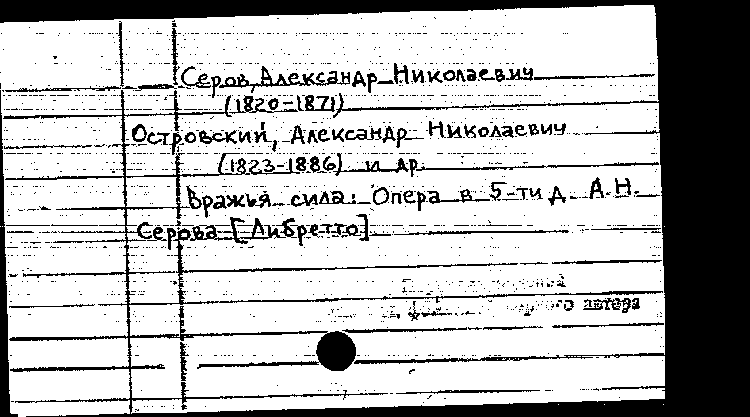 Серов, Александр Николаевич
(1820-1871)
Островский, Александр Николаевич
(1823-1886) и др.
Вражья сила: Опера в 5-ти д. А.Н.
Серова [Либретто]
автора